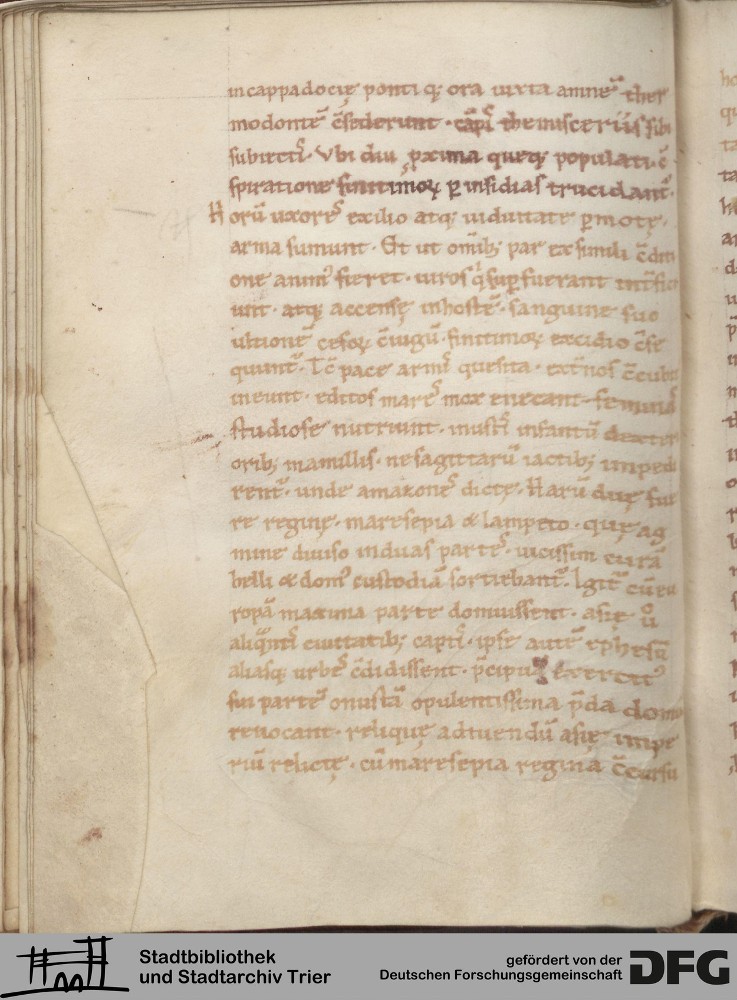 incappadocię ponti q; ora iuxta amnē ther
modontē c̄sederunt · cāpis themisceriis sibi
subiectis · Vbi diu p̱xima quęq; populati · c̄
spiratione finitimoꝝ ꝑ insidias trucidant̄ ·
Horū uxores exilio atq; uiduitate ꝑmotę ·
arma sumunt · Et ut omīb; par ex simili c̄diti
one animus fieret · uiros q̇ suꝑfuerant int̄fici
unt · atq; accensę inhostē · sanguine suo
ultionē cesoꝝ c̄iugū · finitimoꝝ excidio c̄se
quunt̄ · Tc̄ pace armis quesita · ext̄nos c̄cubit
ineunt · editos mares mox enecant · feminas
studiose nutriunt · inustis infantū dexteri
orib; mamillis · ne sagittarū iactib; impedi
rent̄ · unde amazones dictę · Harū duę fue
re reginę · maresepia & lampeto · quę ag
mine diuiso induas partes · uicissim curā
belli & domus custodiā sortiebant̄ · Igit̄ cū eu
ropā maxima parte domuissent · asię ů
aliq̄ntis ciuitatib; captis · ipsę autē ephesū
aliasq; urbes c̄didissent · p̄cipuā exercitus
sui partē onustā opulentissima p̄da domū
reuocant · reliquę adtuendū asię impe
riū relictę · cū maresepia regina c̄cursu
Stadtbibliothek
und Stadtarchiv Trier
gefördert von der
Deutschen Forschungsgemeinschaft
DFG